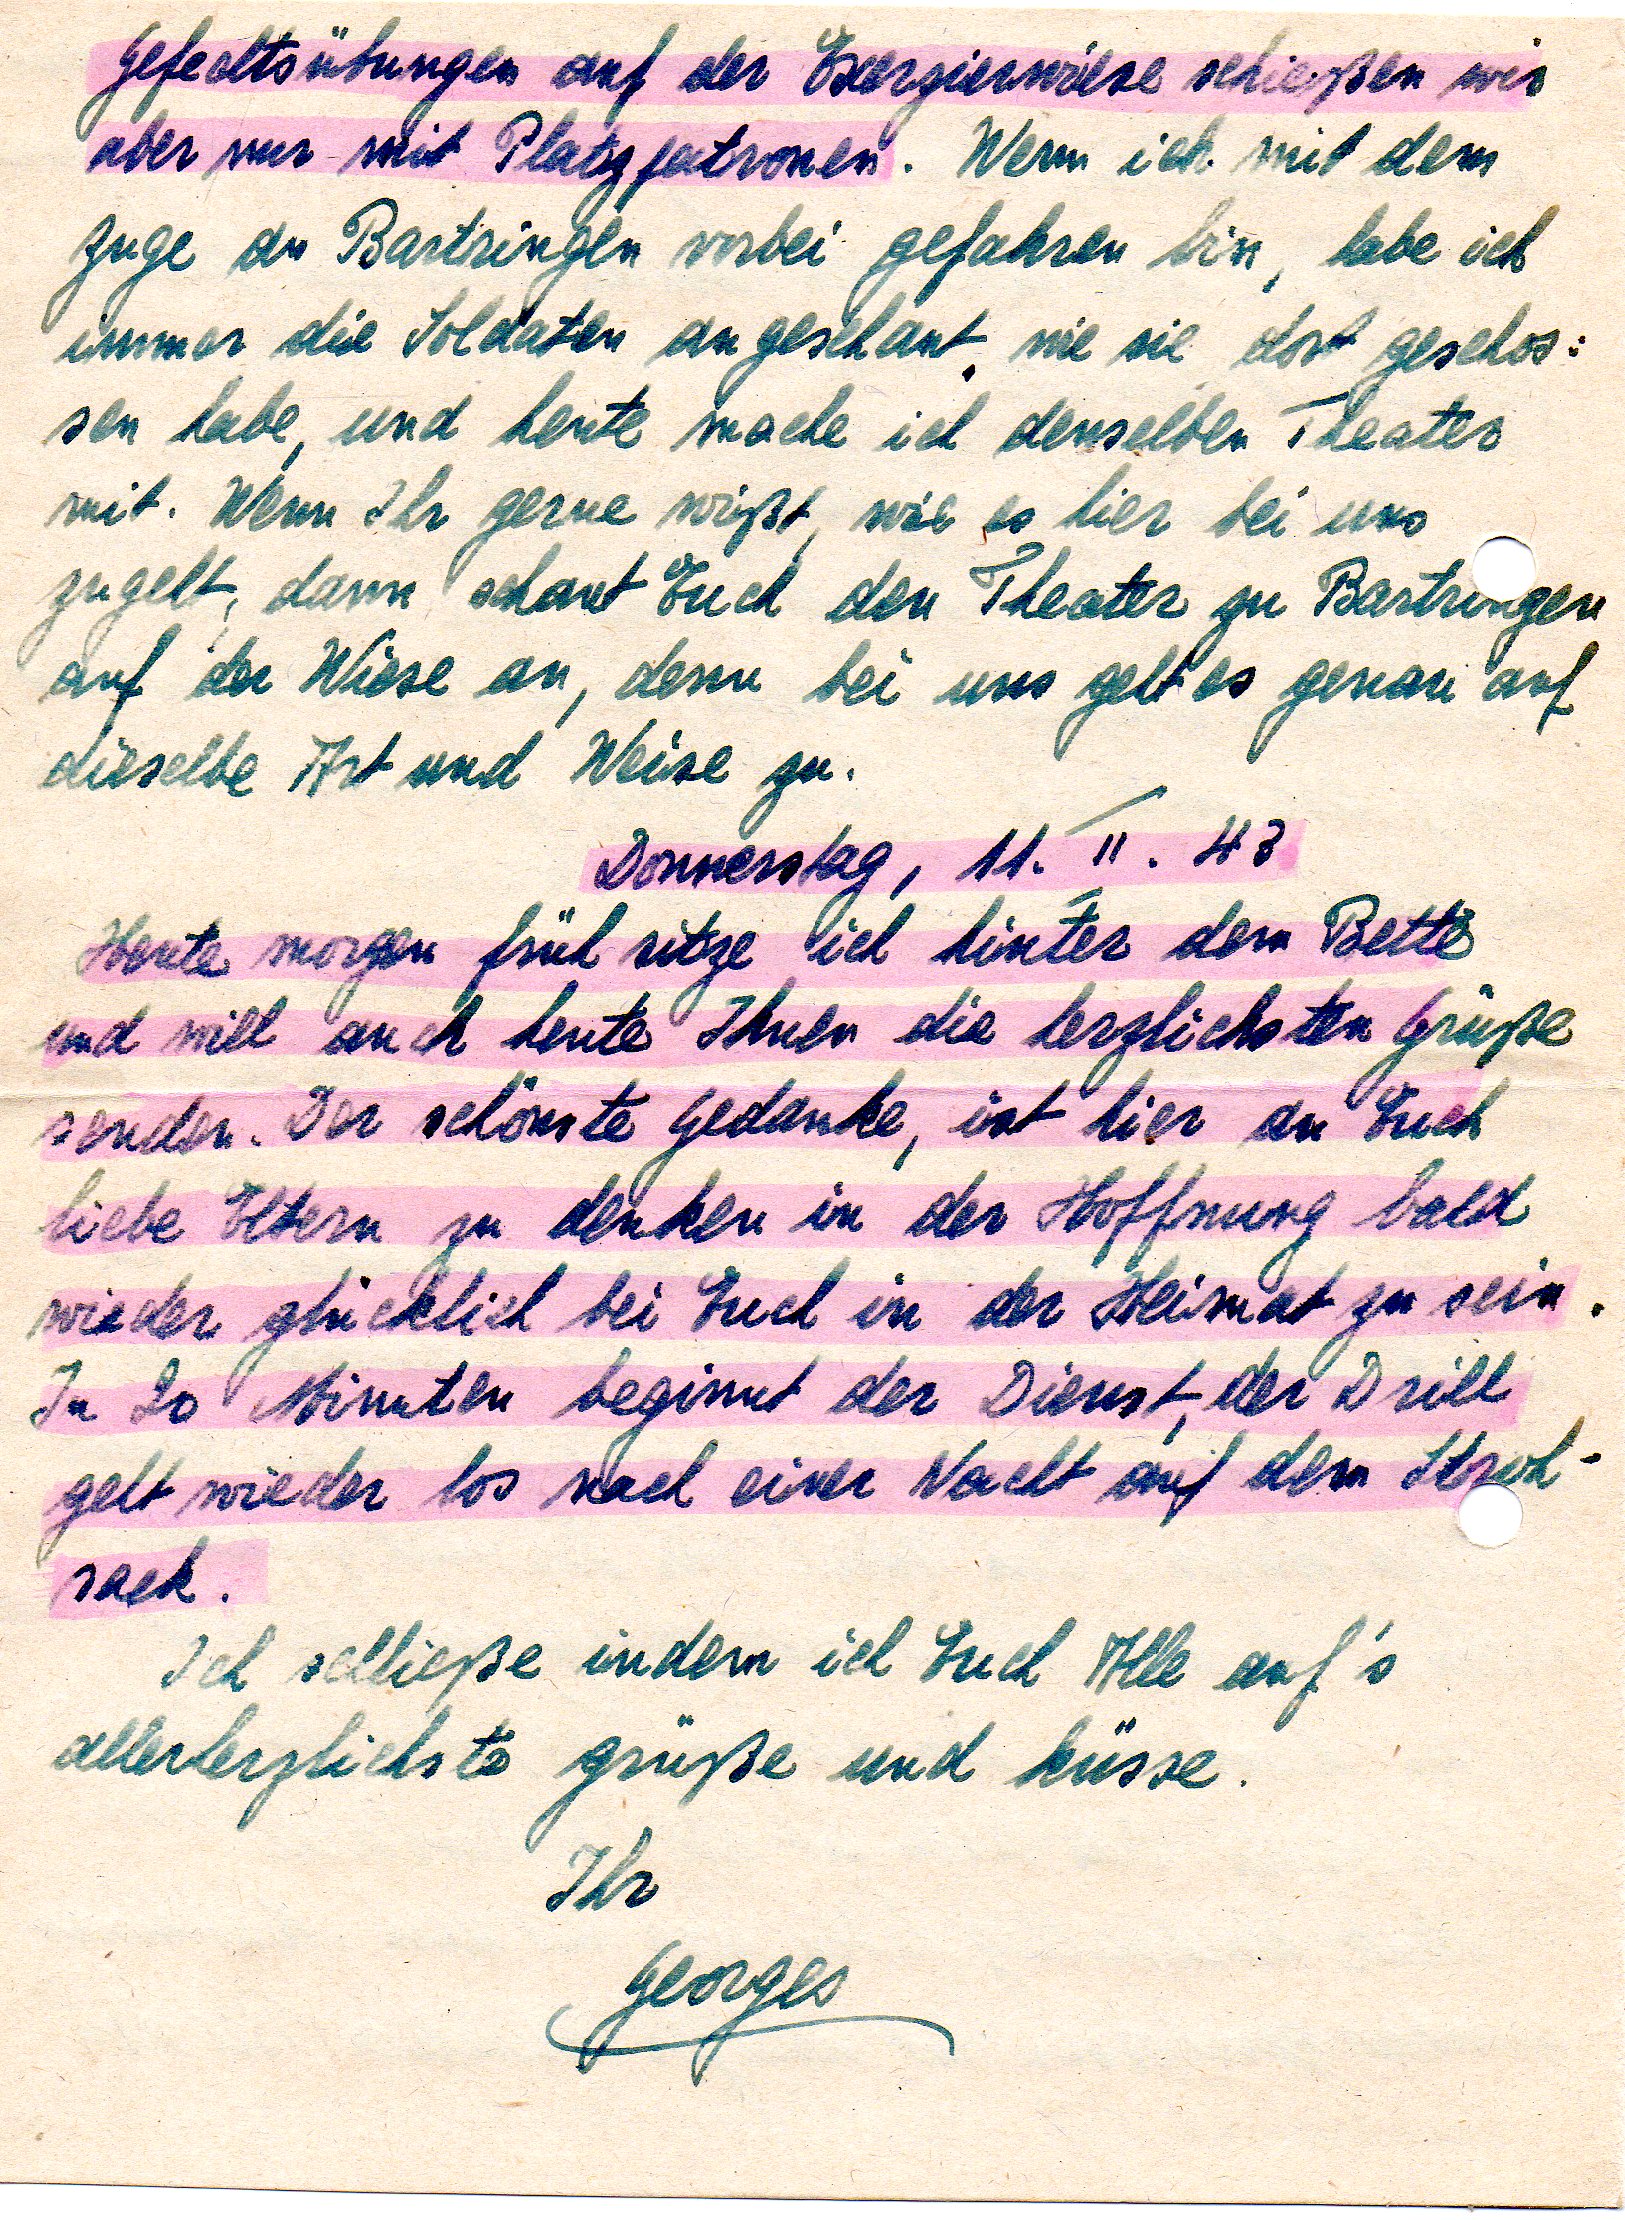 Gefechtsübungen auf der Exerzierwiese schießen wir
aber nur mit Platzpatronen. Wenn ich mit dem
Zuge an Bartringen vorbei gefahren bin, habe ich
immer die Soldaten angeschaut, wie sie dort geschos:
sen habe, und heute mache ich denselben Theater
mit. Wenn Ihr gerne wißt, wie es hier bei uns
zugeht, dann schaut Euch den Theater zu Bartringen
auf der Wiese an, denn bei uns geht es genau auf
dieselbe Art und Weise zu.
Donnerstag, 11. II. 43
Heute morgen früh sitze ich hinter dem Bette
und will auch heute Ihnen die herzlichsten Grüße
senden. Der schönste Gedanke, ist hier an Euch
liebe Eltern zu denken in der Hoffnung bald
wieder glücklich bei Euch in der Heimat zu sein.
In 20 Minuten beginnt der Dienst, der Drill
geht wieder los nach einer Nacht auf dem Stroh-
sack.
Ich schließe indem ich Euch Alle auf's
allerherzlichste grüße und küsse.
Ihr
Georges